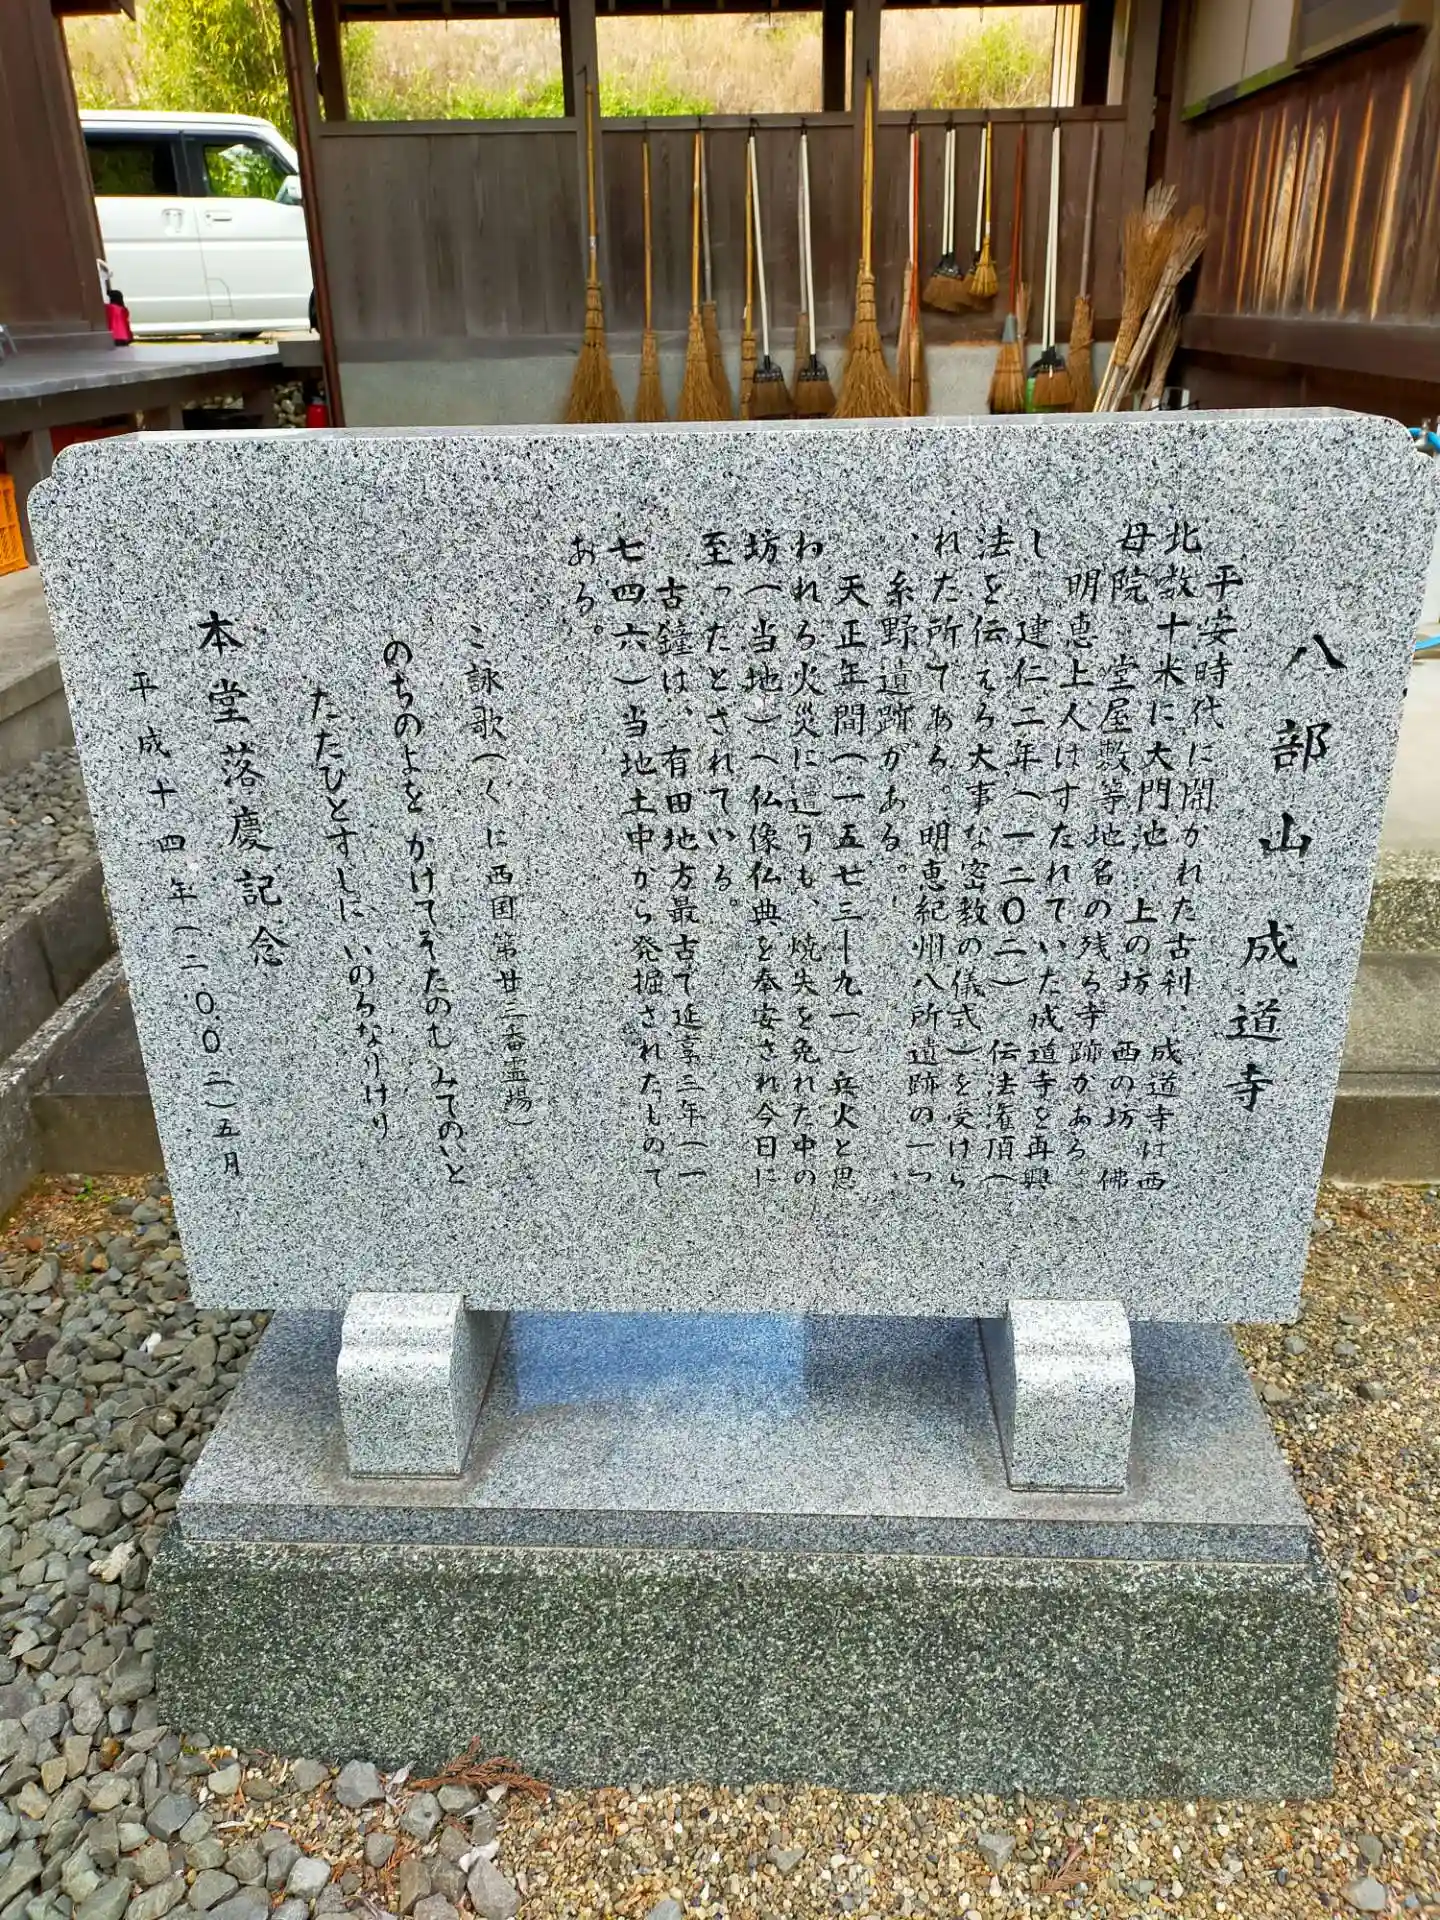 八部山成道寺
平安時代に開かれた古刹、成道寺は西
北数十米に大門池、上の坊、西の坊、佛
母院、堂屋敷等地名の残る寺跡がある。
明恵上人はすたれていた成道寺を再興
し、建仁二年(一二〇二)、伝法潅頂(
法を伝える大事な密教の儀式)を受けら
れた所である。明恵紀州八所遺跡の一つ
、糸野遺跡がある。
天正年間(一五七三―九一)兵火と思
われる火災に遭うも、焼失を免れた中の
坊(当地)(仏像仏典を奉安され今日に
至ったとされている。
古鐘は、有田地方最古で延享三年(一
七四六)当地土中から発掘されたもので
ある。
ご詠歌(くに西国第廿三番霊場)
のちのよを かけてぞたのむ みてのいと
たたひとすじに いのるなりけり
本堂落慶記念
平成十四年(二〇〇二)五月